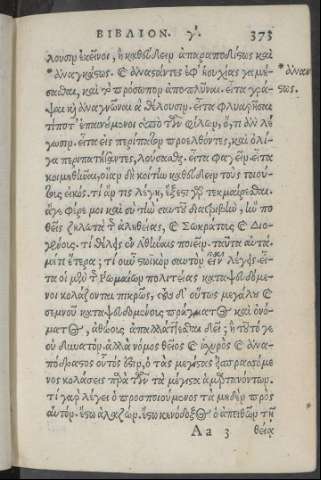 ΒΙΒΛΙΟΝ. γ΄. 373
λουσιν ἐκεῖνοι, ἢ καθεύδειν ἀπαραποδίστως καὶ
*ἀναγκάστως. καὶ ἀναστάντες ἐφ' ἡσυχίας χασμή-
σασθαι, καὶ τὸ πρόσωπον ἀποπλῦναι. εἶτα γρά-
ψαι καὶ ἀναγνῶναι ἃ θέλουσιν. εἶτα φλυαρῆσαι
τίποτ' ἐπαινούμενοι ὑπὸ τῶν φίλων, ὅ, τι ἂν λέ-
γωσιν. εἶτα εἰς περίπατον προελθόντες, καὶ ὀλί-
γα περιπατήσαντες, λούσασθαι. εἶτα φαγεῖν. εἶτα
κοιμηθῆναι, οἵαν δὴ κοίτην καθεύδειν τοὺς τοιού-
τους εἰκός. τί ἄν τις λέγῃ, ἔξεστι γὰρ τεκμαίρεσθαι.
ἄγε φέρε μοι καὶ σὺ τὴν σαυτοῦ διατριβὴν, ἣν πο-
θεῖς ζηλωτὰ τῆς ἀληθείας, καὶ Σωκράτους καὶ Διο-
γένους. τί θέλεις ἐν Ἀθήναις ποιεῖν. ταῦτα αὐτὰ.
μή τι ἕτερα; τί οὖν στοϊκὸν σαυτὸν εἶναι λέγεις. εἶ-
τα οἱ μὲν τῆς Ῥωμαίων πολιτείας καταψευδόμε-
νοι κολάζονται πικρῶς, τοὺς δ' οὕτως μεγάλου καὶ
σεμνοῦ καταψευδομένους πράγματος καὶ ὀνό-
ματος, ἀθώους ἀπαλλάττεσθαι δεῖ; ἢ τοῦτό γε
οὐ δυνατὸν. ἀλλὰ νόμος θεῖος καὶ ἰσχυρὸς καὶ ἀνα-
πόδραστος οὗτός ἐστιν, ὁ τὰς μεγίστας εἰσπρασσόμε
νος κολάσεις παρὰ τῶν τὰ μέγιστα ἁμαρτανόντων.
τί γὰρ λέγει ὁ προσποιούμενος τὰ μηδὲν πρὸς
αὐτὸν. ἔστω ἀλαζών. ἔστω κενόδοξος ὁ ἀπειθῶν τῇ
Aa 3 θείᾳ
*ἀναναν-
στως.